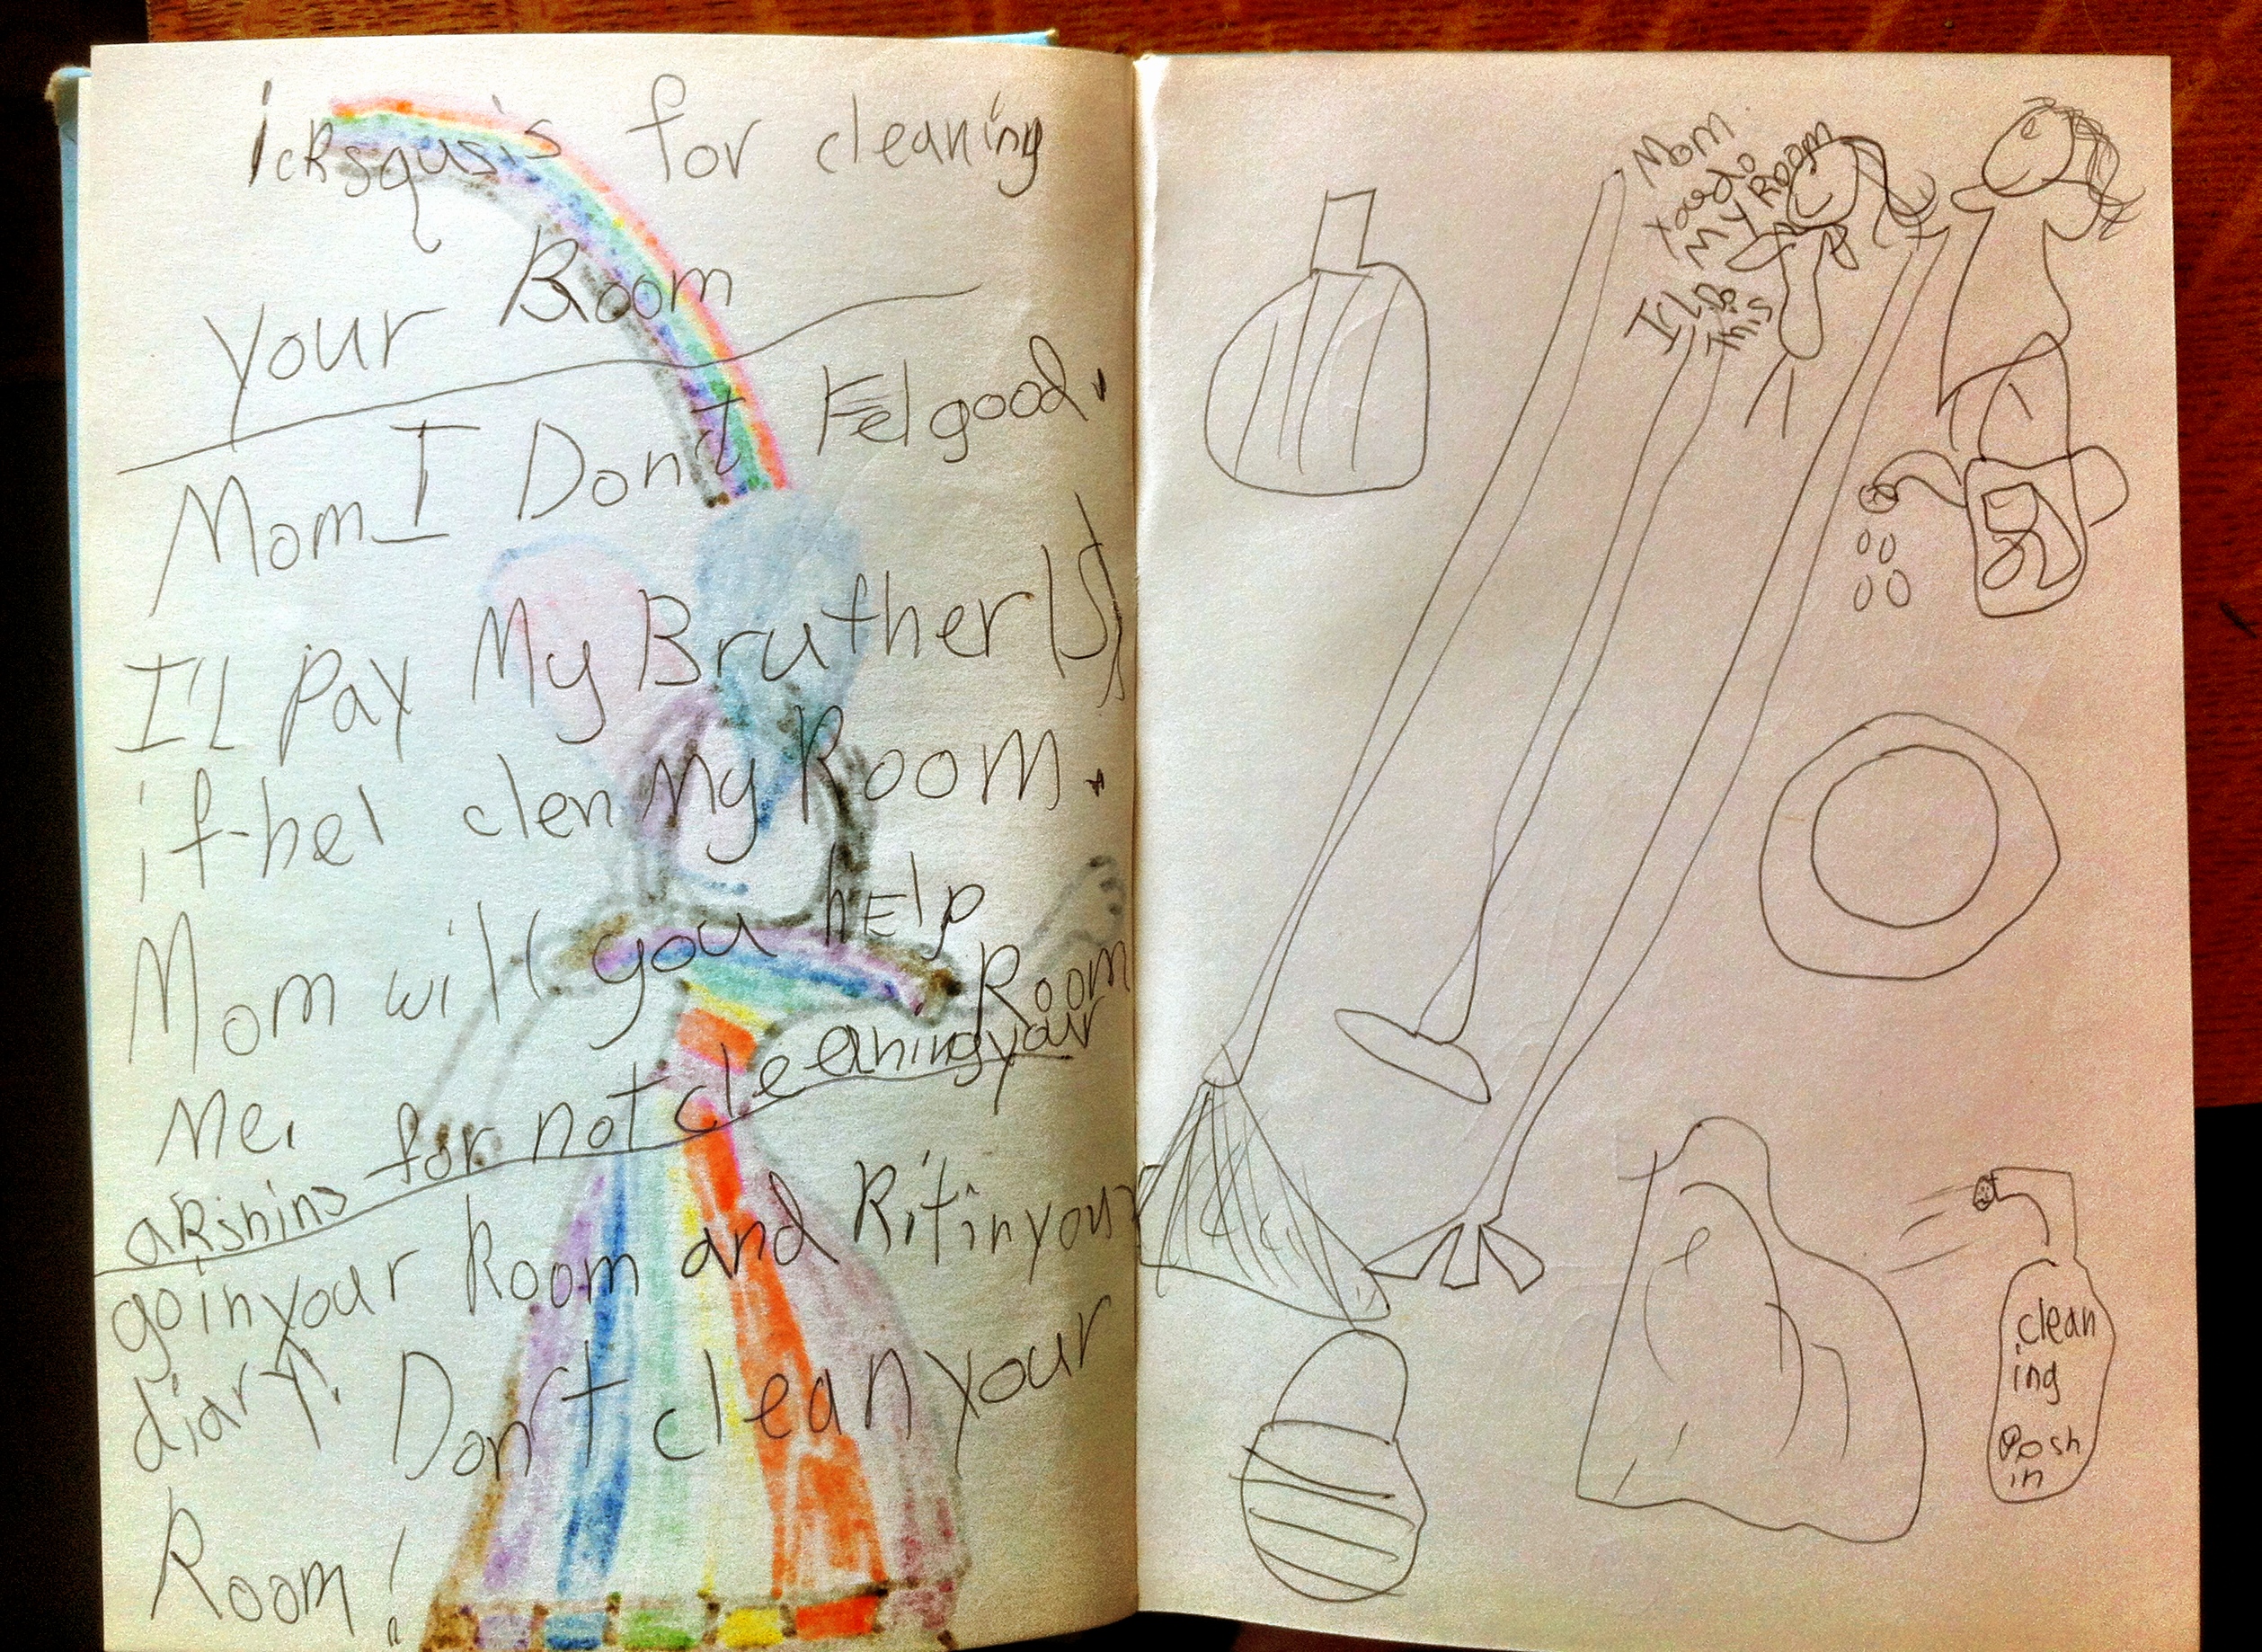 icksqusis for cleaning
your Room
Mom I Don't Fel good.
I'll Pay My Bruther 1$
if hel clen My Room.
Mom will you help
Me.
akshins for not cleaning your Room
go in your Room and Rit in your
diary! Don't clean your
Room!
Mom
My Room
I'L Do
This
clean
ing
Posh
in